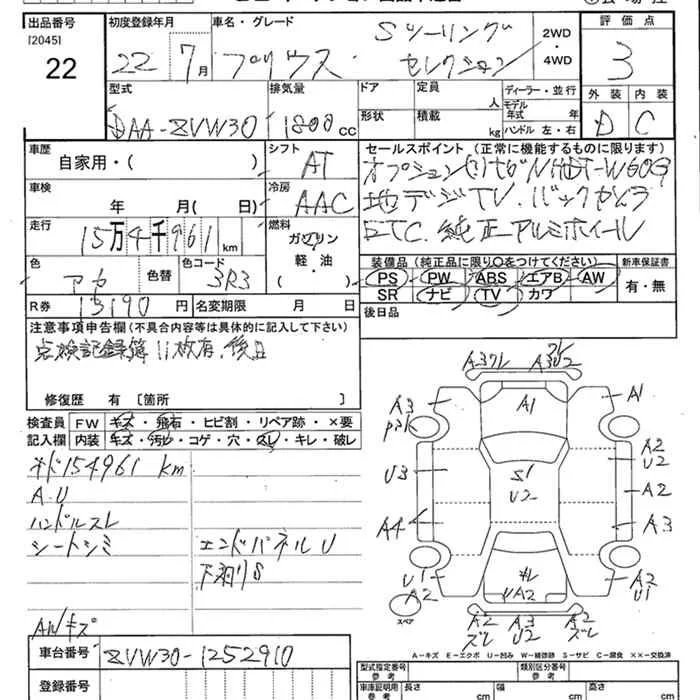 出品番号 初度登録年月 車名・グレード 評価点
[2045]
22 22 7月 プリウス Sツーリング セレクション 2WD・4WD 3
型式 排気量 ドア 定員 人 ディーラー・並行 外装 内装
DAA-ZVW30 1800cc 形状 積載 kg モデル年式 年 ハンドル 左・右 D C
車歴 シフト セールスポイント(正常に機能するものに限ります)
自家用・( ) AT オプションHDDナビNHDT-W60G
車検 冷房 地デジTV.バックカメラ
年 月(日) AAC ETC.純正アルミホイール
走行 燃料
15万4千961km ガソリン
色 色替 色コード 軽・油 装備品(純正品に限り○をつけてください) 新車保証書
アカ 3R3 ( ) PS PW ABS エアB AW 有・無
R券 13190円 名変期限 月 日 SR ナビ TV カワ
注意事項申告欄(不具合内容等は具体的に記入して下さい) 後日品
点検記録簿11枚有.後日
修復歴 有[箇所 ]
検査員記入欄 FW キズ・飛石・ヒビ割・リペア跡・×要
内装 キズ・汚レ・コゲ・穴・スレ・キレ・破レ
154961km
A.U
ハンドルスレ
シートシミ エンドパネルU
下廻りS
AWキズ
A3ワレ
A3U2
A3
A1
A1
U3
S1
U2
A2
U2
A2
A4
A3
U1
A2
YA2
A2
U1
A2
ズレ
A3
U2
A2
ズレ
スペア
A-キズ E-エクボ U-凹み W-補修跡 S-サビ C-腐食 ××-交換済
車台番号 ZVW30-1252910
登録番号
型式指定番号 参考 類別区分番号 参考
車庫証明用 参考 長さ cm 幅 cm 高さ cm